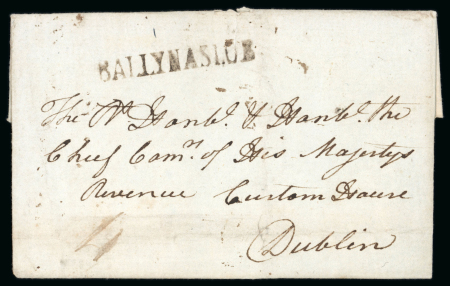 BALLYNASLOE
The Rt. Honble. & Honble. the
Chief Comrs. of His Majestys
Revenue Custom House
Dublin